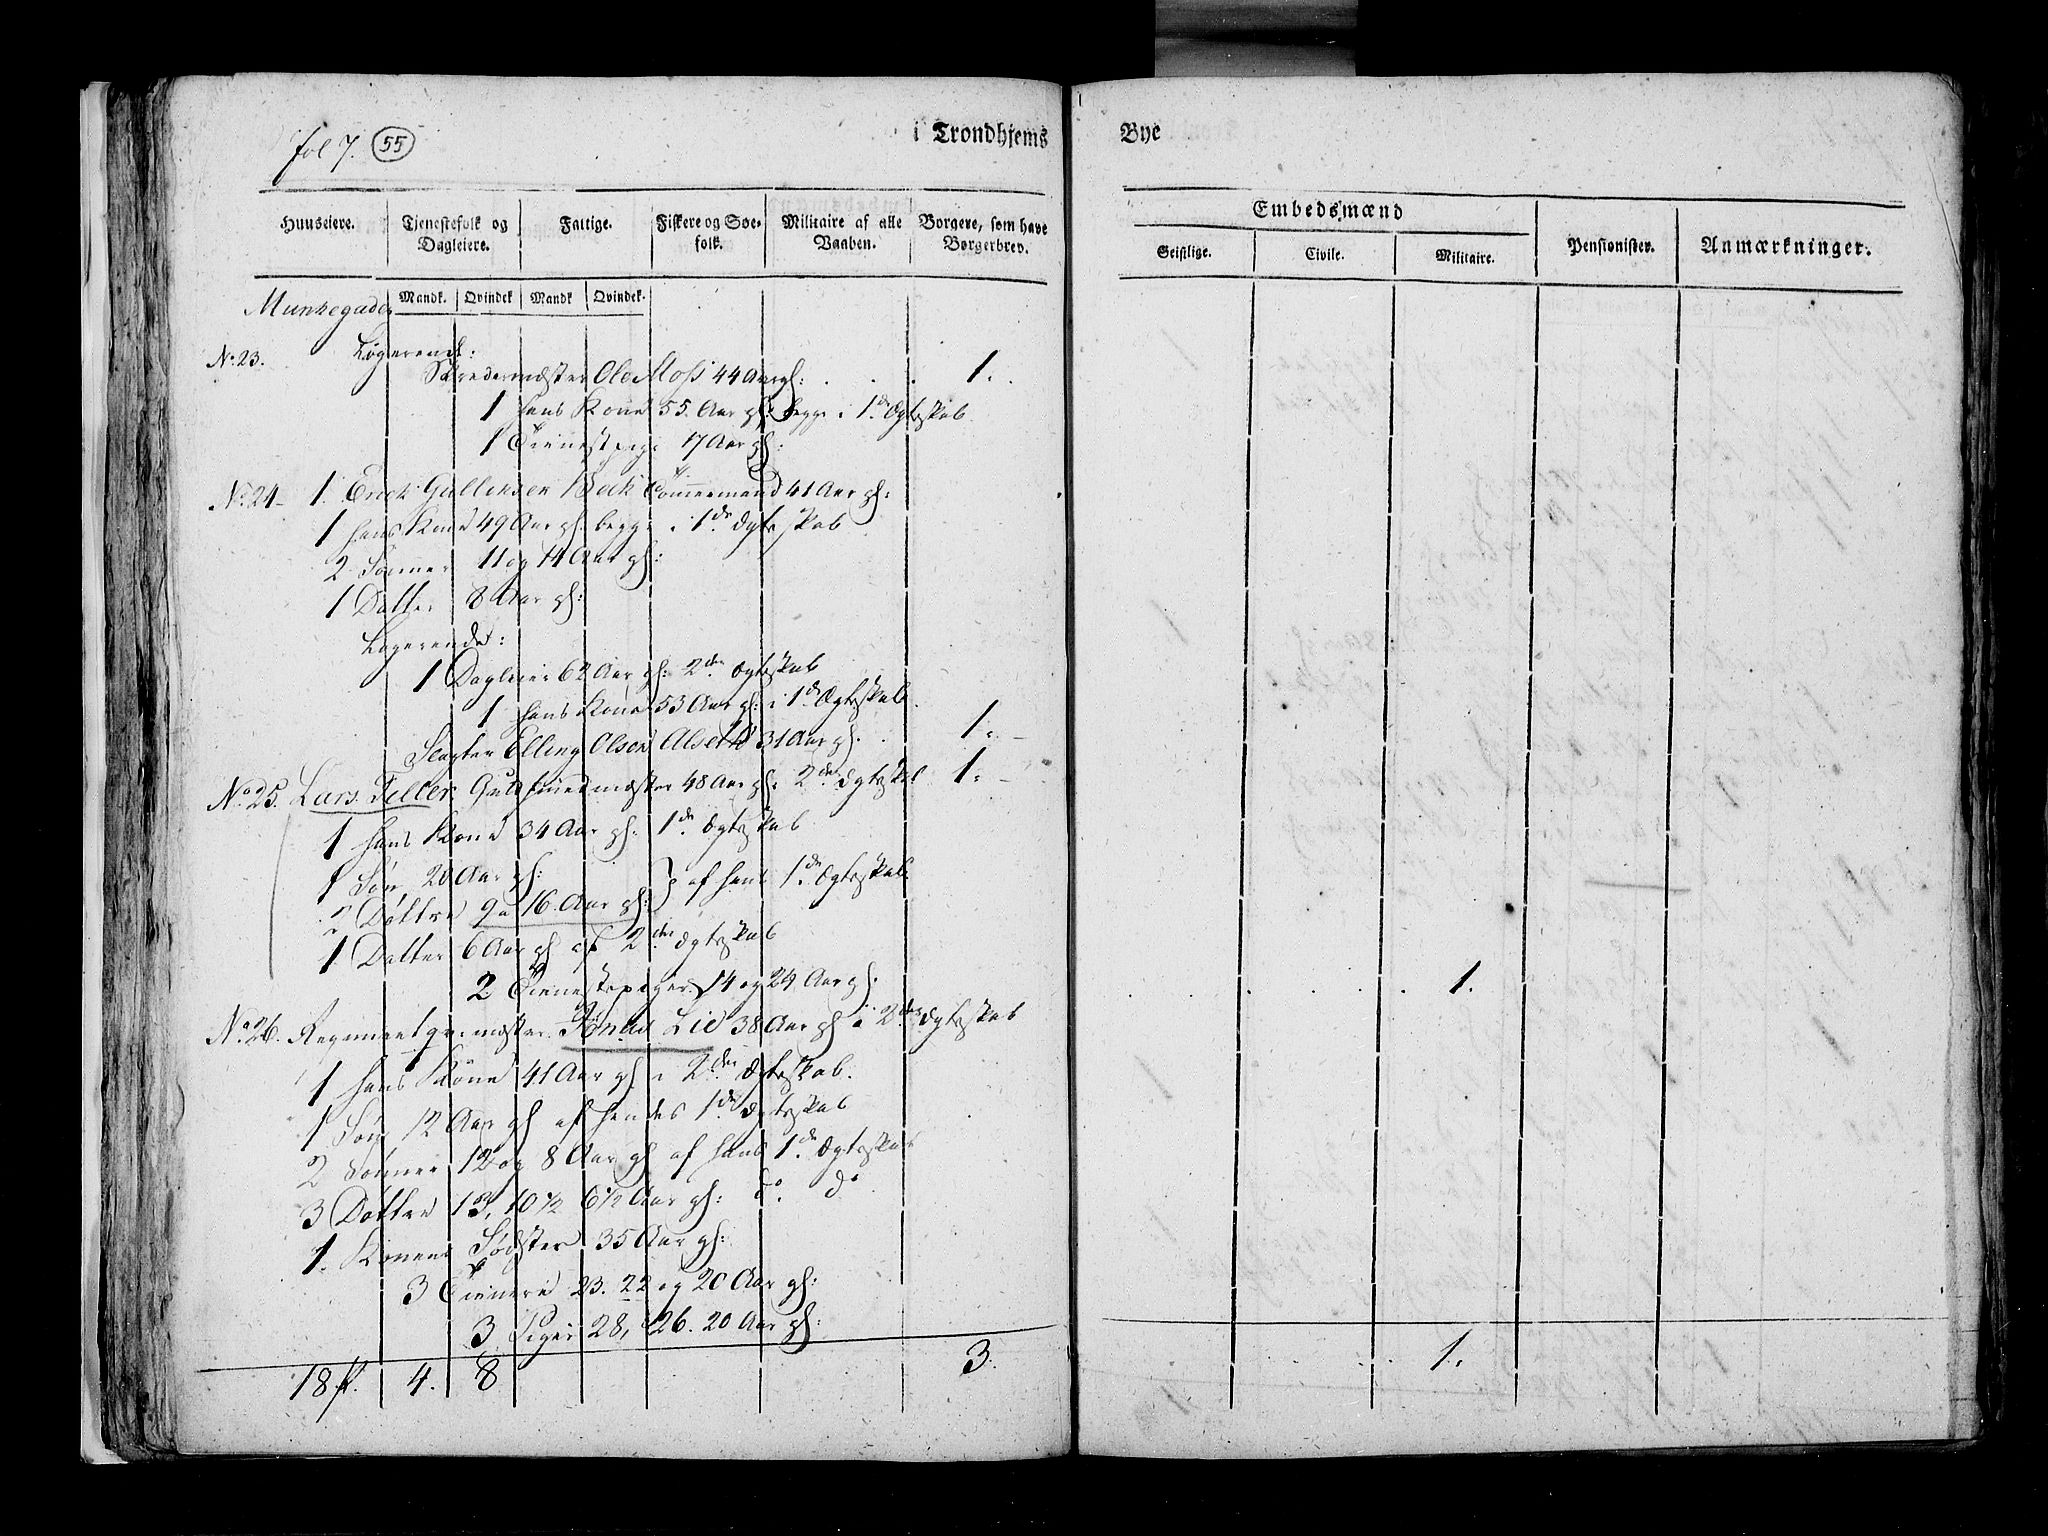 fol 7. 55
i Trondhjems Bye
Huuseiere. Tjenestefolk og Dagleiere. Fattige. Fiskere og Søe-folk. Militaire af alle Vaaben. Borgere, som have Borgerbrev.
Embedsmænd
Geistlige. Civile. Militaire. Pensionister. Anmærkninger.
Mandk. Qvindek Mandk Qvindek.
Munkegaden
No. 23. Logerende:
Skredermæster Ole Moss 44 Aar gl: . . . 1.
1 hans Kone 55. Aar gl: begge i 1de Ægteskab
1 Tienestepige 17 Aar gl:
No. 24 1. Erick Gullensen Beck Tømmermand 41 Aar gl:
1 hans Kone 49 Aar gl. begge i 1de Ægteskab
2 Sønner 11 og 14 Aar gl:
1 Datter 8 Aar gl:
Logerende:
1 Dagleier 62 Aar gl: 2det Ægteskab
1 hans Kone 53 Aar gl: i 1de Ægteskab.
Slagter Elling Olsen Alseth 31 Aar gl. . 1.
No. 25. Lars Feller Guldsmedmæster 48 Aar gl: 2det Ægteskab 1.
1 hans Kone 34 Aar gl: 1de Ægteskab
1 Søn 20 Aar gl:
2 Døttre 9 o 16. Aar gl: } af hans 1de Ægteskab.
1 Datter 6 Aar gl af 2det Ægteskab
2 Tienestepiger 14 og 24 Aar gl.
No. 26. Regimentqvmæster Jonas Lie 38 Aar gl i 2det Ægteskab . . . . 1.
1 hans Kone 41 Aar gl i 2det Ægteskab.
1 Søn 12 Aar gl af hendes 1de Ægteskab
2 Sønner 12 og 8 Aar gl af hans 1de Ægteskab
3 Døttre 13, 10 1/2 6 1/2 Aar gl: do. do
1. Konens Sødster 35 Aar gl:
3 Tienere 23. 22 og 20 Aar gl:
3 Piger 28, 26. 20 Aar gl:
18 4. 8 3. 1.